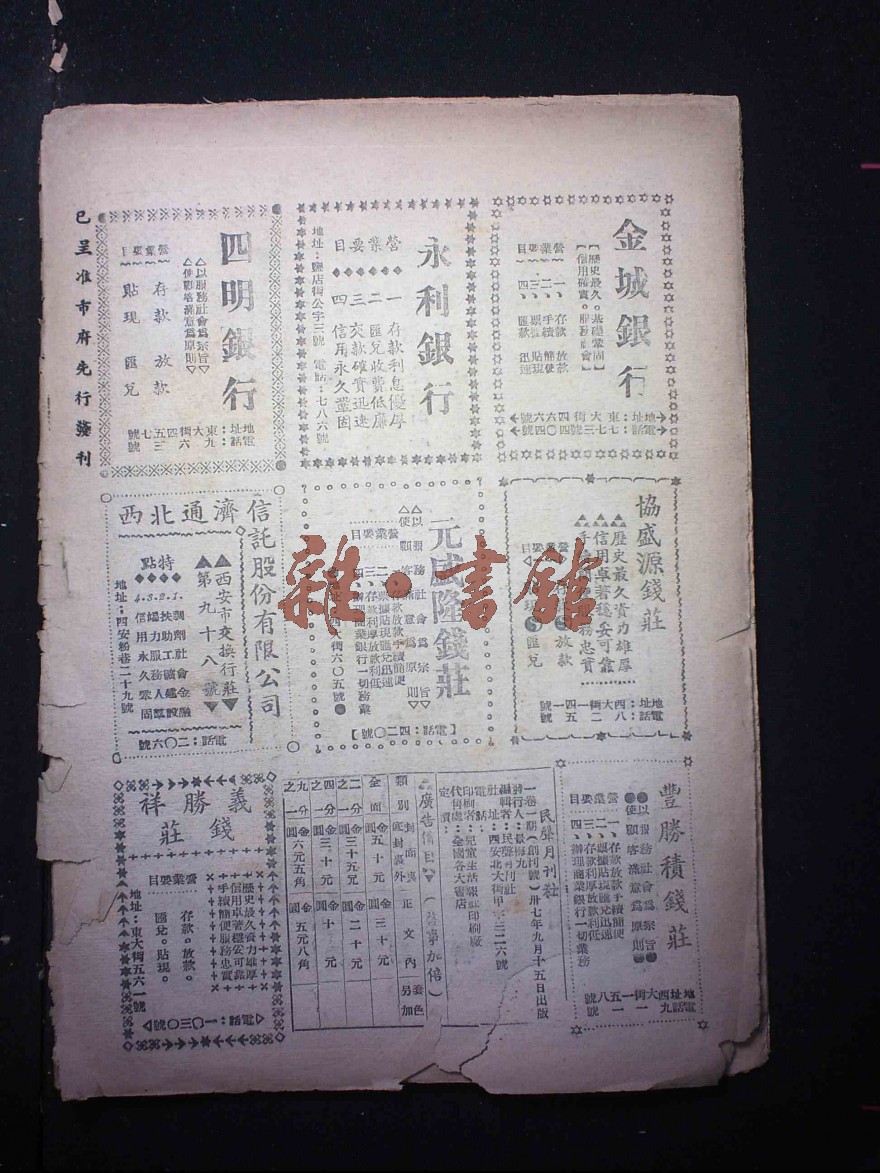 金城銀行
【歷史最久。基礎鞏固】
【信用確實。服務社會】
營業要目
一、存款 放款
二、手續 簡便
三、票據 貼現
四、匯款 迅速
地址：東大街四六六號
電話：七七三號四〇四號
永利銀行
營業要目
一 存款利息優厚
二 匯兌收費低廉
三 交款確實迅速
四 信用永久鞏固
地址：鹽店街公字三號 電話：七八六號
四明銀行
△以服務社會為宗旨▽
△使顧客滿意為原則▽
營業要目
存款 放款
貼現 匯兌
地址：東大街四七五號
電話：九六三號
已呈准市府先行發刊
協盛源錢莊
▲歷史最久資力雄厚
▲信用卓著穩妥可靠
營業要目
放款
匯兌
地址：西大街一四一號
電話：八二五號
元成隆錢莊
△以服務社會為宗旨▽
△使顧客滿意為原則▽
營業要目
一、存款放款手續簡便
二、票據貼現匯兌迅速
三、存款利厚放款利低
四、辦理商業銀行一切業務
西大街六〇五號
【電話：四二〇號】
西北通濟信託股份有限公司
▲西安市交換行莊▼
▲第九十八號▼
特點
1.調劑社會金融
2.扶助工礦建設
3.竭力服務人羣
4.信用永久鞏固
地址：西安粉巷二十九號
電話：二〇六號
豐勝積錢莊
●以服務社會為宗旨●
●使顧客滿意為原則●
營業要目
一、存款放款手續簡便
二、票據貼現匯兌迅速
三、存款利厚放款利低
四、辦理商業銀行一切業務
地址西大街一五八號
電話九一一號
民聲月刊社
一卷一期（創刊號）卅七年九月十五日出版
發行人：景梅九
編輯者：民聲月刊社
社址：西安北大街甲字三二六號
電話：
印刷者：兒童生活報社印刷廠
代售處：全國各大書店
定價：
廣告價目
類別 封面裏底封裏外 正文內 套色另加
全面 金圓五十元 金圓三十元
二分之一 金圓三十五元 金圓二十元
四分之一 金圓二十元 金圓十元
九分之一 金圓六元五角 金圓五元八角
義勝祥錢莊
歷史最久資力雄厚
信用卓著穩妥可靠
手續簡便服務忠實
營業要目
存款。放款。
匯兌。貼現。
地址：東大街五六一號
△電話：一〇三〇號▽
雜·書館